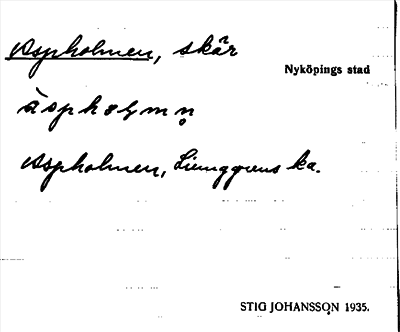 Aspholmen, skär
Nyköpings stad
àspho̤lmn̥
Aspholmen, Ljunggrens ka.
STIG JOHANSSON 1935.